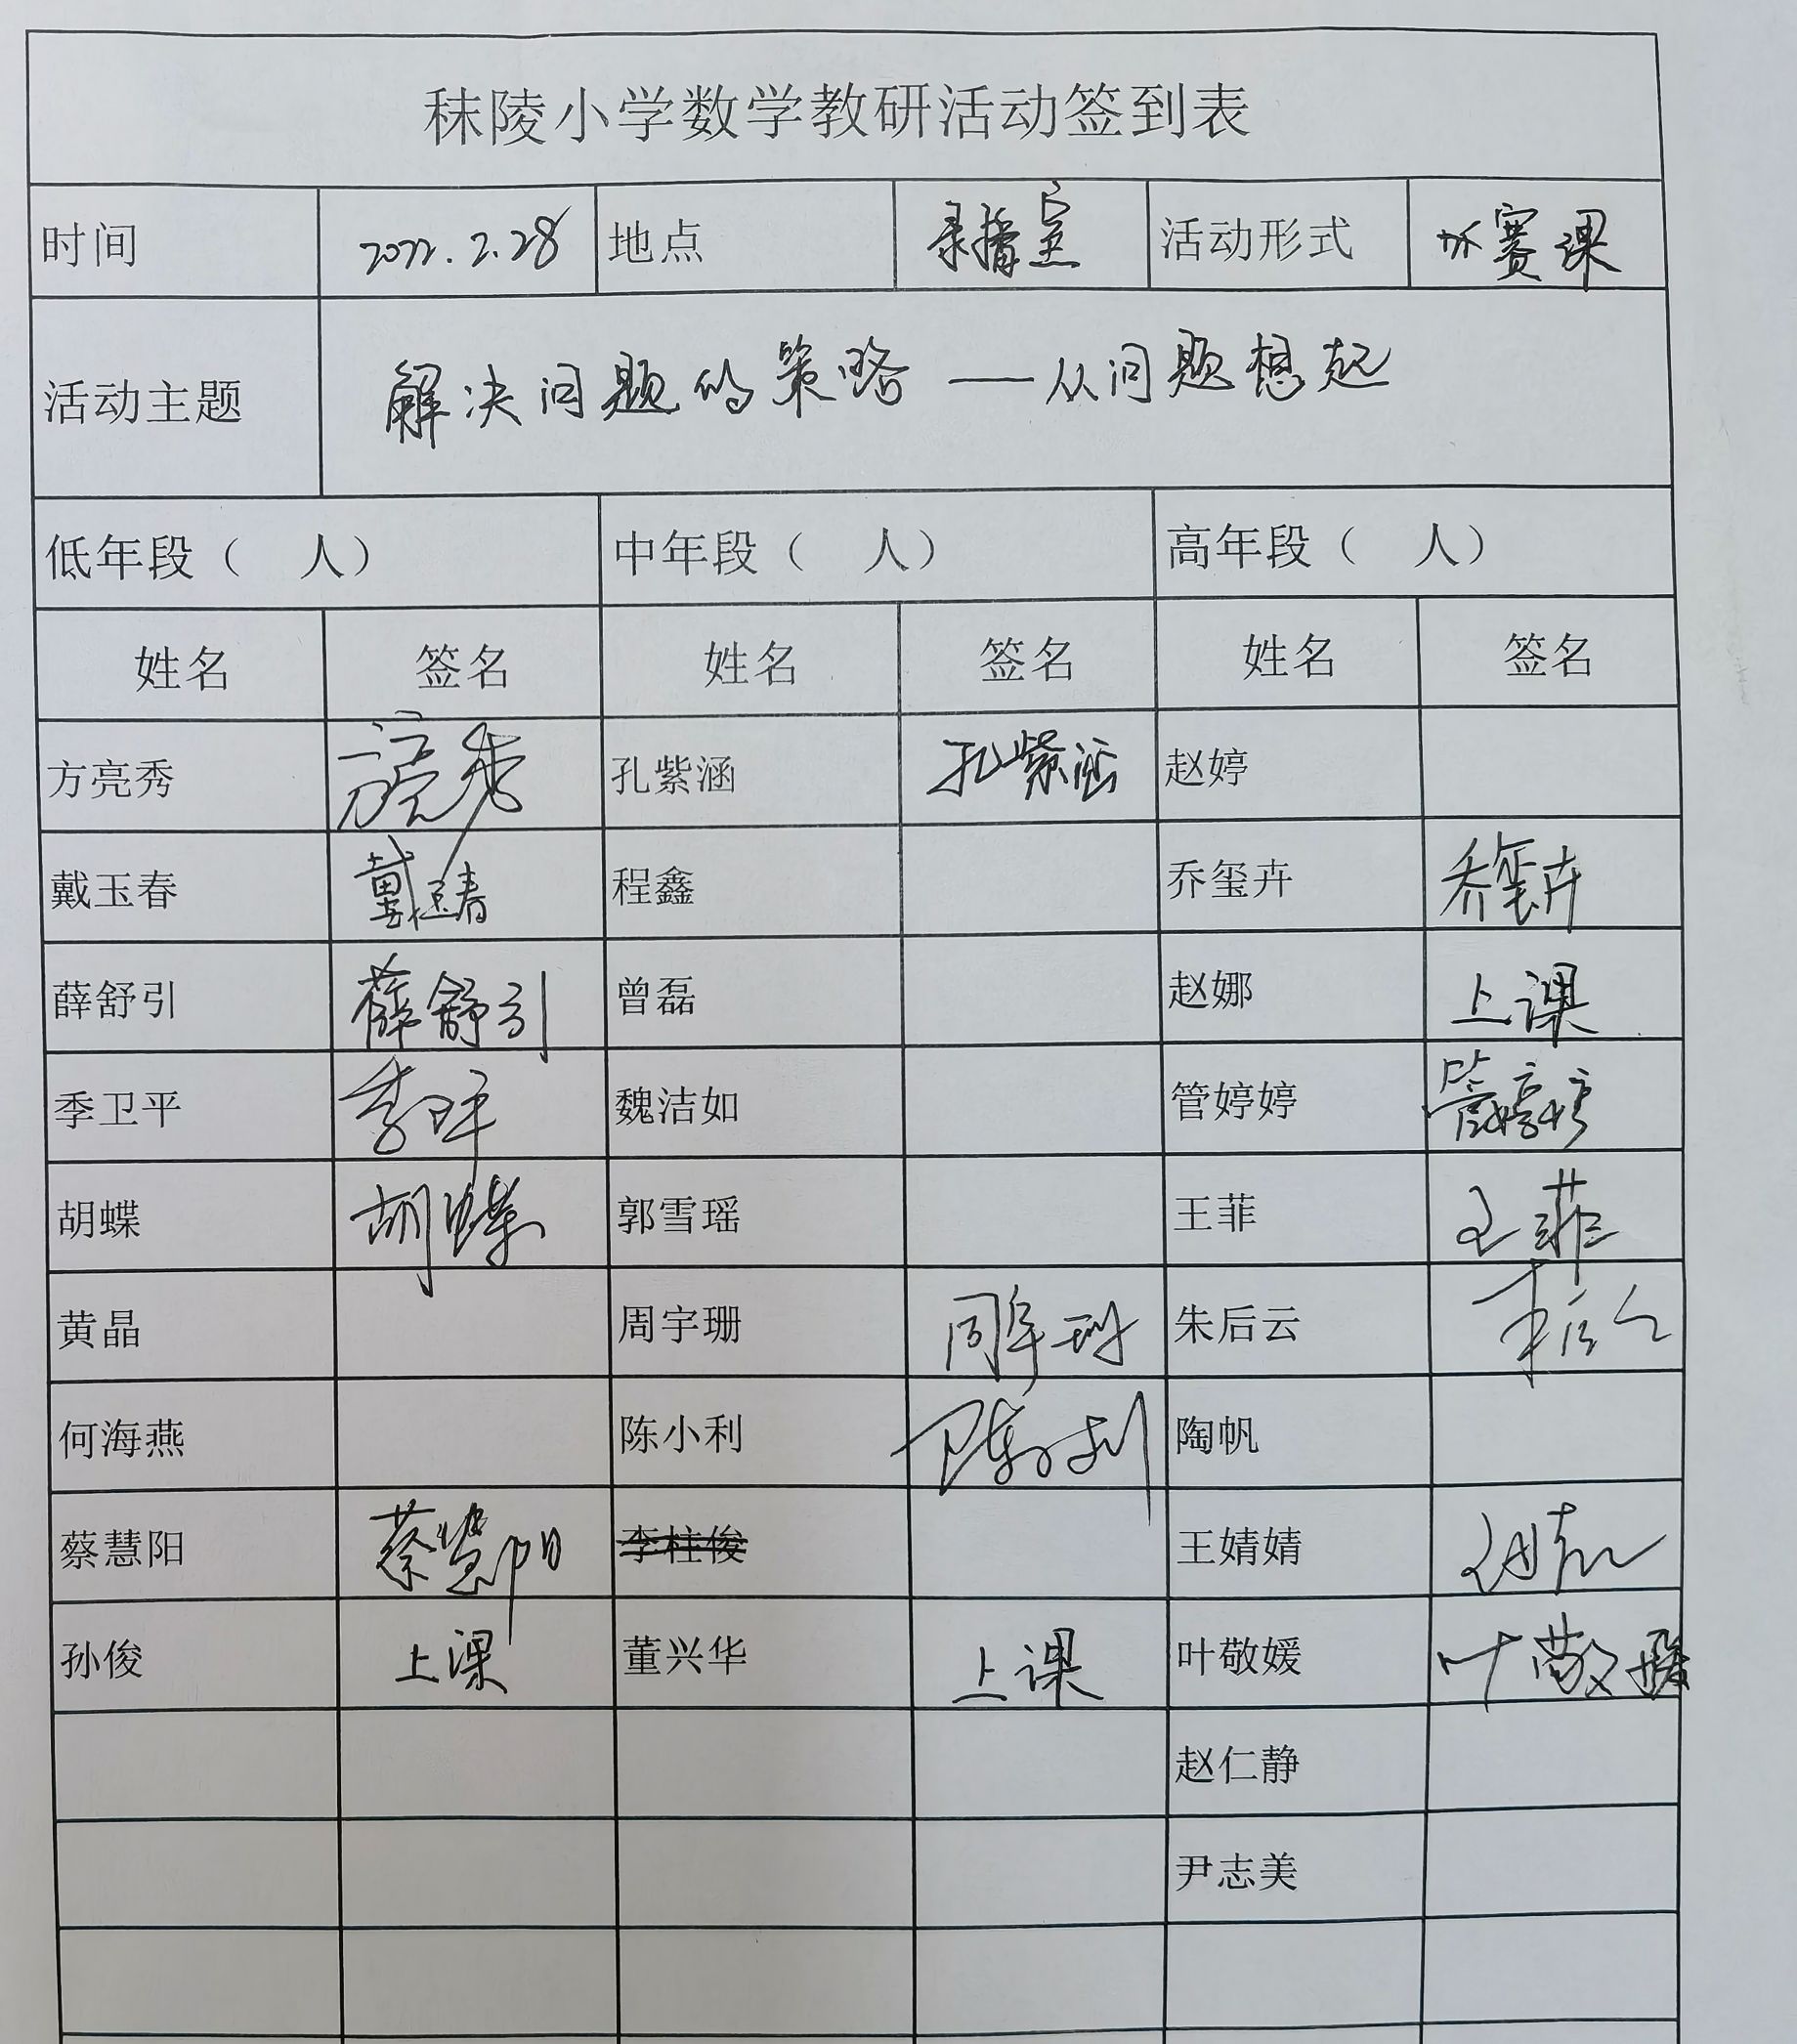 秣陵小学数学教研活动签到表
时间 2022.2.28 地点 录播室 活动形式 赛课
活动主题 解决问题的策略——从问题想起
低年段（ 人） 中年段（ 人） 高年段（ 人）
姓名 签名 姓名 签名 姓名 签名
方亮秀 方亮秀 孔紫涵 孔紫涵 赵婷
戴玉春 戴玉春 程鑫 乔玺卉 乔玺卉
薛舒引 薛舒引 曾磊 赵娜 上课
季卫平 季卫平 魏洁如 管婷婷 管婷婷
胡蝶 胡蝶 郭雪瑶 王菲 王菲
黄晶 周宇珊 周宇珊 朱后云 朱后云
何海燕 陈小利 陈小利 陶帆
蔡慧阳 蔡慧阳 李柱俊 王婧婧
孙俊 上课 董兴华 上课 叶敬媛 叶敬媛
赵仁静
尹志美